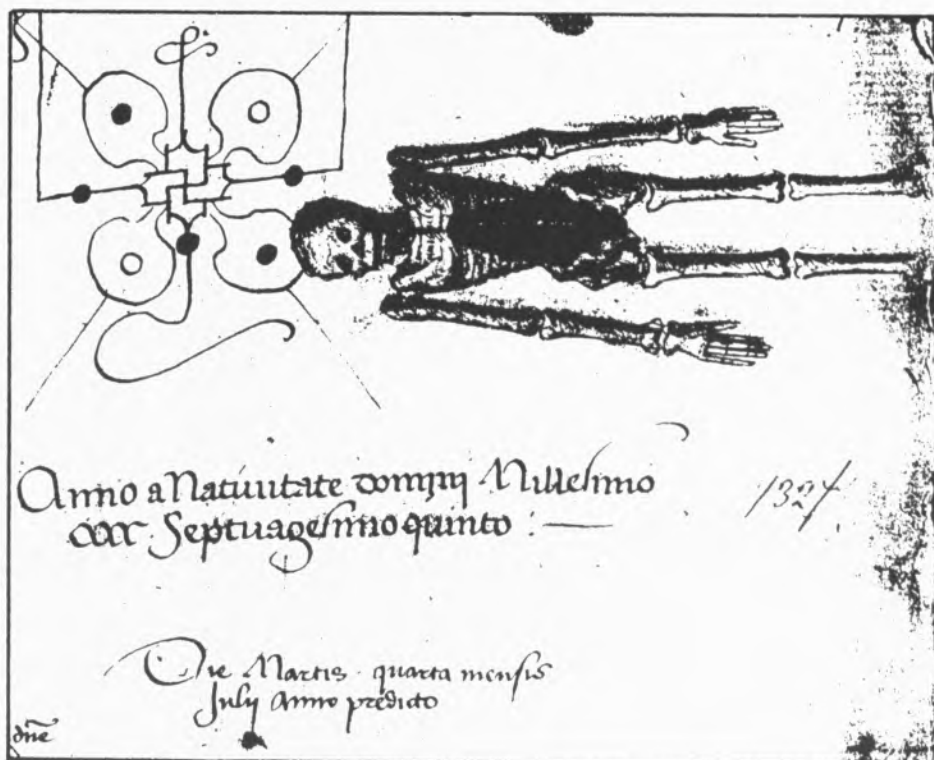 Anno a Natiuitate dominj Millesimo
CCCC Septuagesimo quinto : —
1327.
Die Martis · quarta mensis
Julij Anno predicto
dn̄e